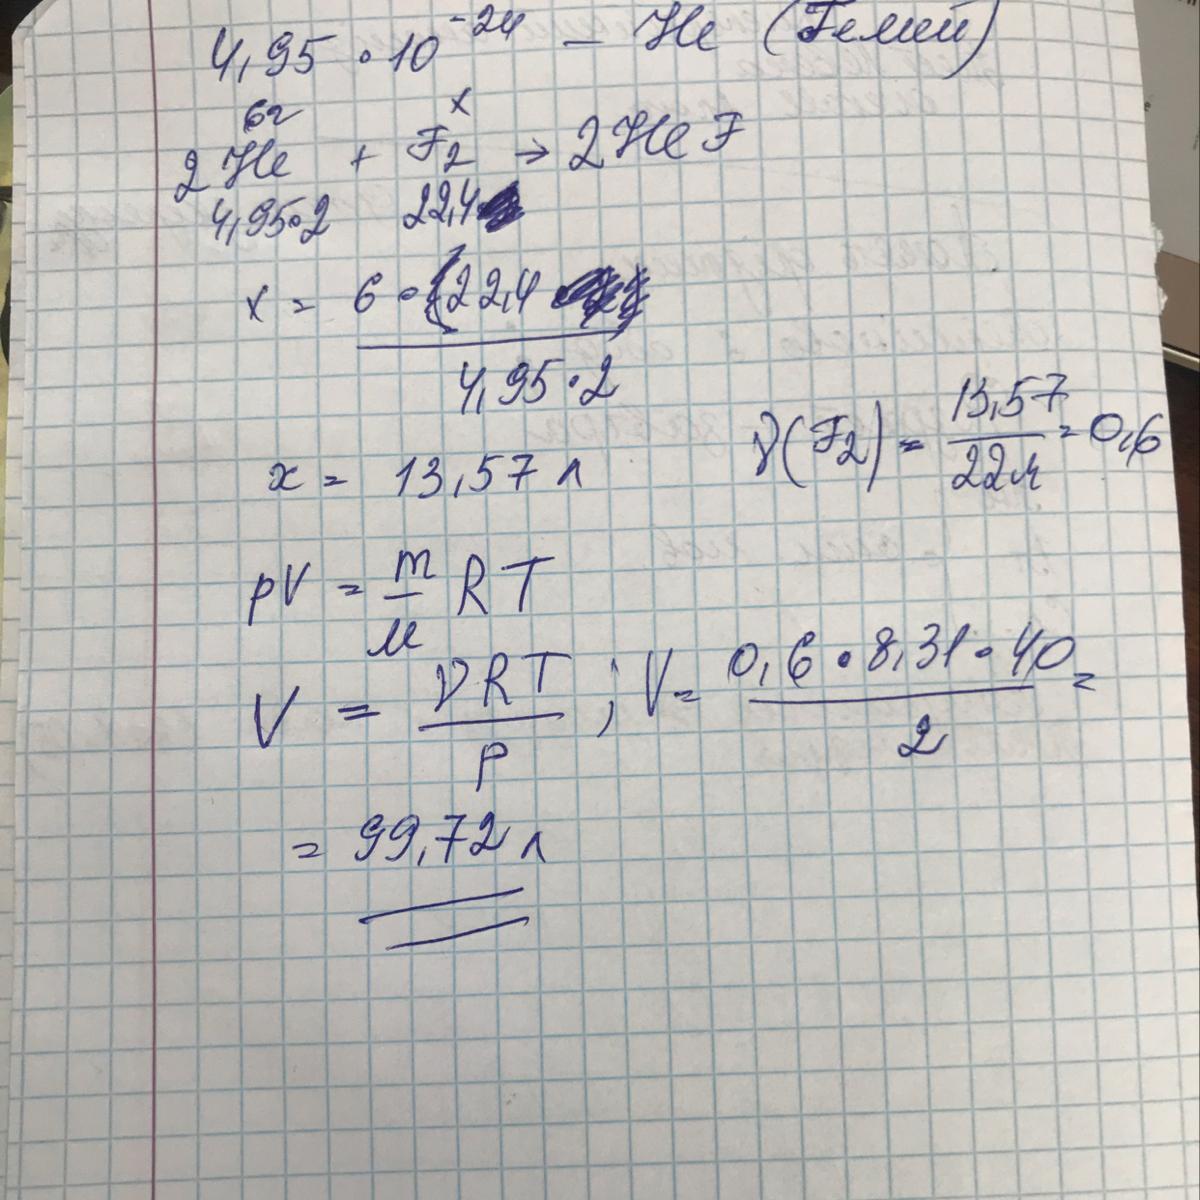 4,95 • 10⁻²⁴ – He (Гелий)
6г x
2He + F₂ → 2HeF
4,95•2 22,4
x = 6 • (22,4) / 4,95•2
x = 13,57 л
ν(F₂) = 13,57 / 22,4 = 0,6
pV = m/μ RT
V = νRT / P ; V = 0,6 • 8,31 • 40 / 2 =
= 99,72 л